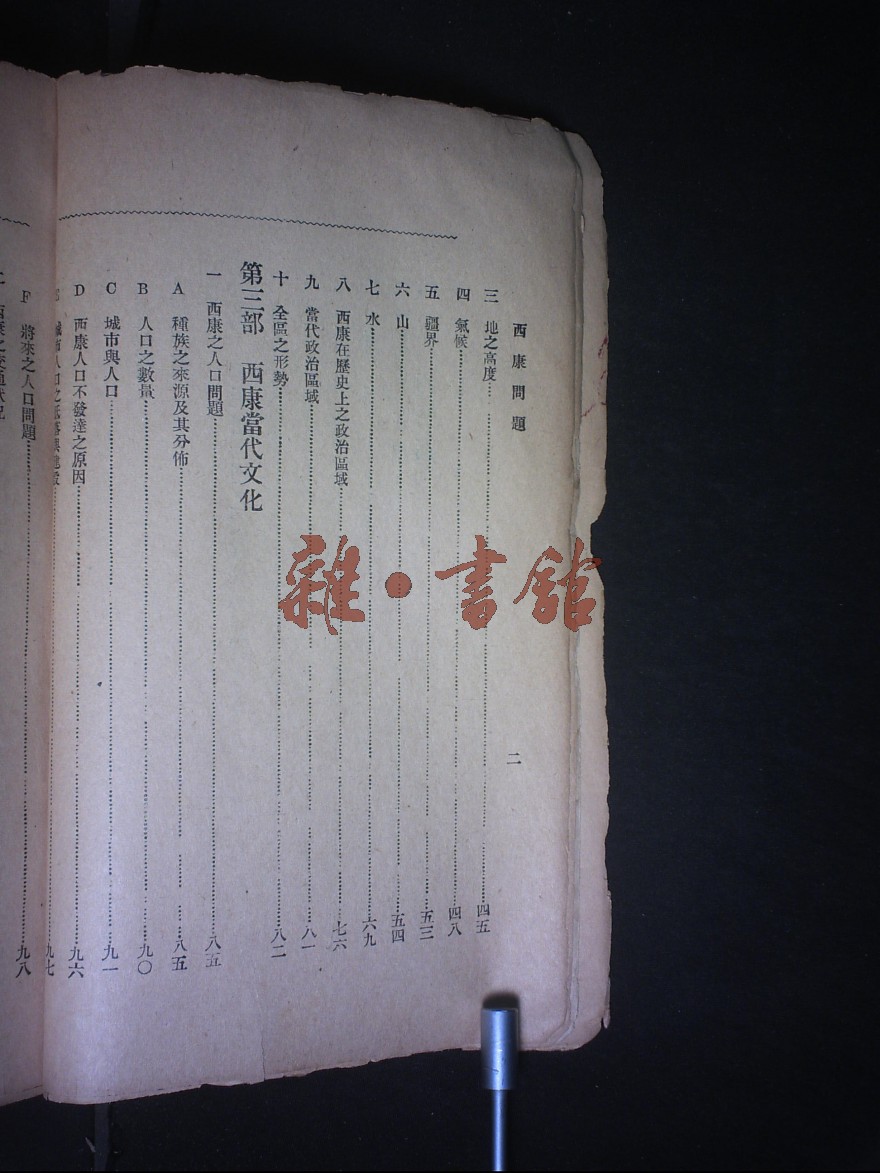 西康問題
二
三 地之高度 四五
四 氣候 四八
五 疆界 五三
六 山 五四
七 水 六九
八 西康在歷史上之政治區域 七六
九 當代政治區域 八一
十 全區之形勢 八二
第三部 西康當代文化
一 西康之人口問題 八五
A 種族之來源及其分佈 八五
B 人口之數量 九〇
C 城市與人口 九一
D 西康人口不發達之原因 九六
九七
F 將來之人口問題 九八
雜·書館